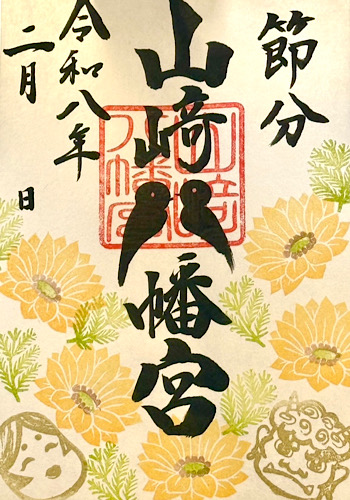 節分
山﨑八幡宮
令和八年
二月 日
山﨑
八幡宮